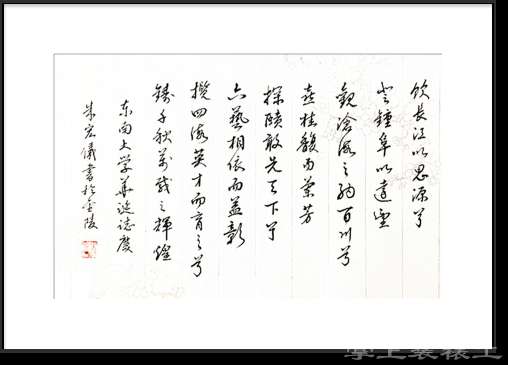 飲長江以思源兮
登鍾阜以遠望
觀滄海之納百川兮
桂馥而蘭芳
探賾敢先天下兮
六藝相依而益彰
攬四海英才而育之兮
鑄千秋萬載之輝煌
東南大學華誕誌慶
朱宏儀書於金陵
掌上装裱工